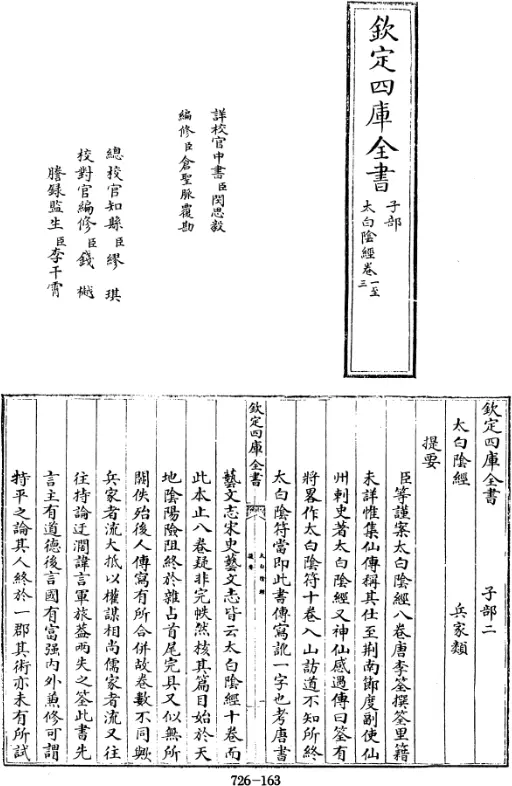 欽定四庫全書
子部
太白陰經卷一至三
詳校官中書臣閔思毅
編修臣倉聖脈覆勘
總校官知縣臣繆琪
校對官編修臣錢樾
謄錄監生臣李千霄
欽定四庫全書　子部二
太白陰經　兵家類
提要
臣等謹案太白陰經八卷唐李筌撰筌里籍
未詳惟集仙傳稱其仕至荆南節度副使仙
州刺史著太白陰經又神仙感遇傳曰筌有
將畧作太白陰符十卷入山訪道不知所終
太白陰符當即此書傳寫訛一字也考唐書
欽定四庫全書
太白陰經
提要
藝文志宋史藝文志皆云太白陰經十卷而
此本止八卷疑非完帙然核其篇目始於天
地陰陽險阻終於雜占首尾完具又似無所
闕佚殆後人傳寫有所合併故卷數不同歟
兵家者流大抵以權謀相尚儒家者流又往
往持論迂濶諱言軍旅葢兩失之筌此書先
言主有道德後言國有富强内外兼修可謂
持平之論其人終於一郡其術亦未有所試
726-163